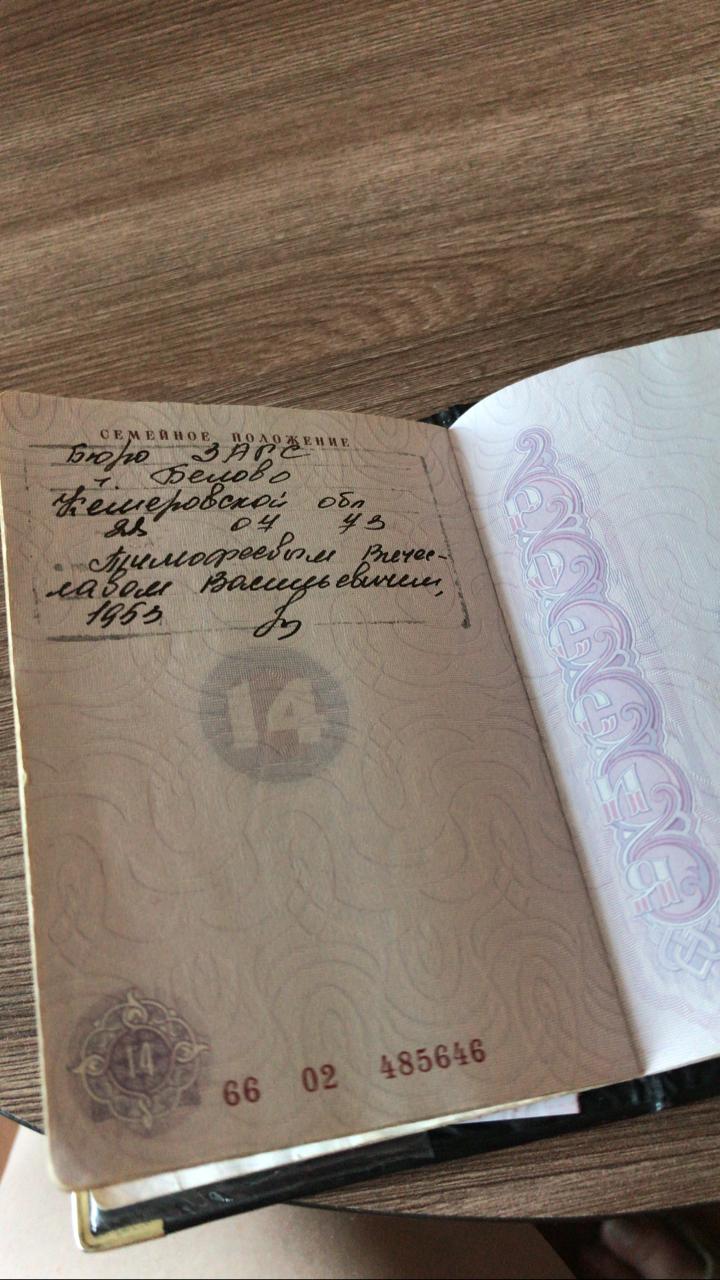 СЕМЕЙНОЕ ПОЛОЖЕНИЕ
Бюро ЗАГС
г. Белово
Кемеровской обл
07 73
Тимофеевым Вячес-
лавом Васильевичем,
1953
14
14
66 02 485646